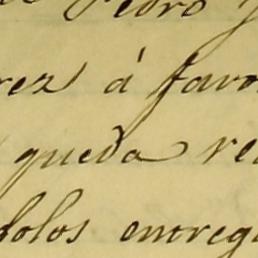 Pedro y
rez á favo
queda re
dolos entreg